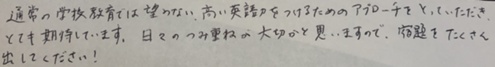 通常の学校教育では望めない、高い英語力をつけるためのアプローチをとっていただき、
とても期待しています。日々のつみ重ねが大切かと思いますので、宿題をたくさん
出してください!